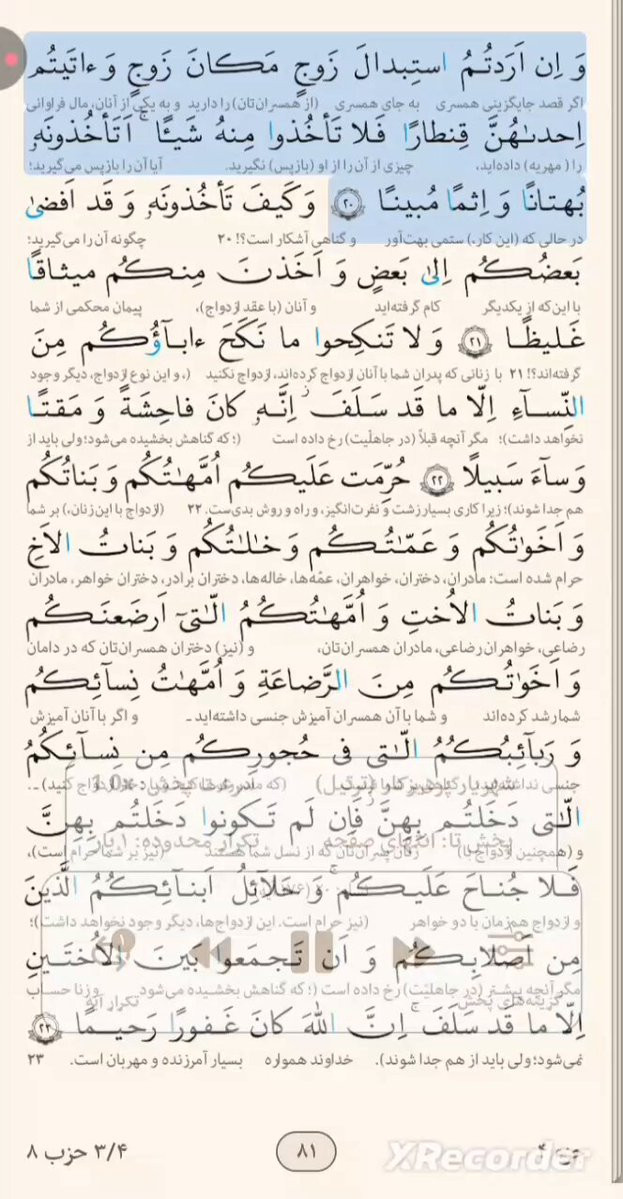 وَ اِن اَرَدتُمُ استِبدالَ زَوجٍ مَكانَ زَوجٍ وَ ءاتَيتُم
اگر قصد جایگزینی همسری به جای همسری (از همسران‌تان) را دارید و به یکی از آنان، مال فراوانی
اِحدىٰهُنَّ قِنطارًا فَلا تَأخُذوا مِنهُ شَيـًٔا ۚ اَتَأخُذونَهٗ
را (مهریه) داده‌اید، چیزی از آن را از او (بازپس) نگیرید. آیا آن را بازپس می‌گیرید؛
بُهتانًا وَ اِثمًا مُبينًا ﴿٢٠﴾ وَ كَيفَ تَأخُذونَهٗ وَ قَد اَفضىٰ
در حالی که (این کار،) ستمی بهت‌آور و گناهی آشکار است؟! ۲۰ چگونه آن را می‌گیرید؛
بَعضُكُم اِلىٰ بَعضٍ وَ اَخَذنَ مِنكُم ميثاقًا
با این‌که از یکدیگر کام گرفته‌اید و آنان (با عقد ازدواج)، پیمان محکمی از شما
غَليظًا ﴿٢١﴾ وَ لا تَنكِحوا ما نَكَحَ ءابآؤُكُم مِنَ
گرفته‌اند؟! ۲۱ با زنانی که پدران شما با آنان ازدواج کرده‌اند، ازدواج نکنید (، و این نوع ازدواج، دیگر وجود
النِّسآءِ اِلّا ما قَد سَلَفَ ۚ اِنَّهٗ كانَ فاحِشَةً وَ مَقتًا
نخواهد داشت)؛ مگر آنچه قبلاً (در جاهلیّت) رخ داده است (؛ که گناهش بخشیده می‌شود؛ ولی باید از
وَ سآءَ سَبيلًا ﴿٢٢﴾ حُرِّمَت عَلَيكُم اُمَّهٰتُكُم وَ بَناتُكُم
هم جدا شوند)؛ زیرا کاری بسیار زشت و نفرت‌انگیز، و راه و روش بدی‌ست. ۲۲ (ازدواج با این زنان،) بر شما
وَ اَخَوٰتُكُم وَ عَمّٰتُكُم وَ خٰلٰتُكُم وَ بَناتُ الاَخِ
حرام شده است: مادران، دختران، خواهران، عمّه‌ها، خاله‌ها، دختران برادر، دختران خواهر، مادران
وَ بَناتُ الاُختِ وَ اُمَّهٰتُكُمُ الّٰتىٓ اَرضَعنَكُم
رضاعی، خواهران رضاعی، مادران همسران‌تان، و (نیز) دختران همسران‌تان که در دامان
وَ اَخَوٰتُكُم مِنَ الرَّضاعَةِ وَ اُمَّهٰتُ نِسآئِكُم
شما رشد کرده‌اند و شما با آن همسران آمیزش جنسی داشته‌اید ـ و اگر با آنان آمیزش
وَ رَبآئِبُكُمُ الّٰتى فى حُجورِكُم مِن نِسآئِكُمُ
شهریار پرهیزکار (ترتیل) سرعت پخش: 1.0x
الّٰتى دَخَلتُم بِهِنَّ فَاِن لَم تَكونوا دَخَلتُم بِهِنَّ
پخش تا: انتهای صفحه تکرار محدوده: ۱ بار
فَلا جُناحَ عَلَيكُم وَ حَلآئِلُ اَبنآئِكُمُ الَّذينَ
و ازدواج هم‌زمان با دو خواهر (نیز حرام است. این ازدواج‌ها، دیگر وجود نخواهد داشت)؛
مِن اَصلابِكُم وَ اَن تَجمَعوا بَينَ الاُختَينِ
مگر آنچه پیشتر (در جاهلیّت) رخ داده است (؛ که گناهش بخشیده می‌شود
گزینه‌های پخش تکرار آیه
اِلّا ما قَد سَلَفَ ۗ اِنَّ اللّٰهَ كانَ غَفورًا رَحيمًا ﴿٢٣﴾
نمی‌شود؛ ولی باید از هم جدا شوند). خداوند همواره بسیار آمرزنده و مهربان است. ۲۳
۳/۴ حزب ۸
۸۱
XRecorder